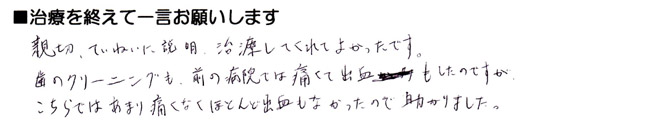 ■治療を終えて一言お願いします
親切、ていねいに説明、治療してくれてよかったです。
歯のクリーニングも、前の病院では痛くて出血もしたのですが、
こちらではあまり痛くなくほとんど出血もなかったので助かりました。